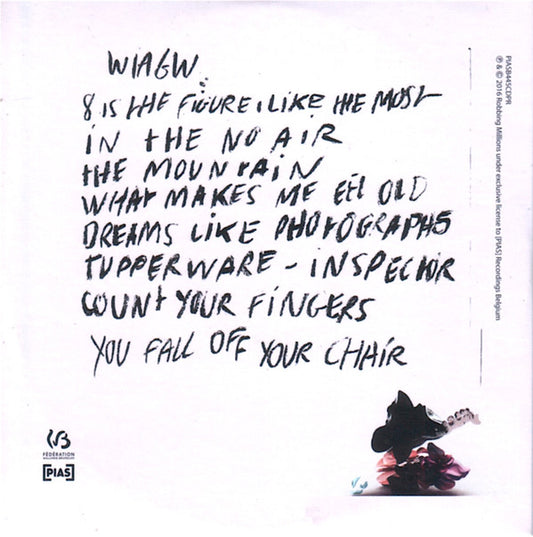 WIAGW
8 IS THE FIGURE I LIKE THE MOST
IN THE NO AIR
THE MOUNTAIN
WHAT MAKES ME EEL OLD
DREAMS LIKE PHOTOGRAPHS
TUPPERWARE - INSPECTOR
COUNT YOUR FINGERS
YOU FALL OFF YOUR CHAIR
PIASB445CDPR
℗ & © 2016 Robbing Millions under exclusive license to [PIAS] Recordings Belgium
FÉDÉRATION
WALLONIE-BRUXELLES
[PIAS]